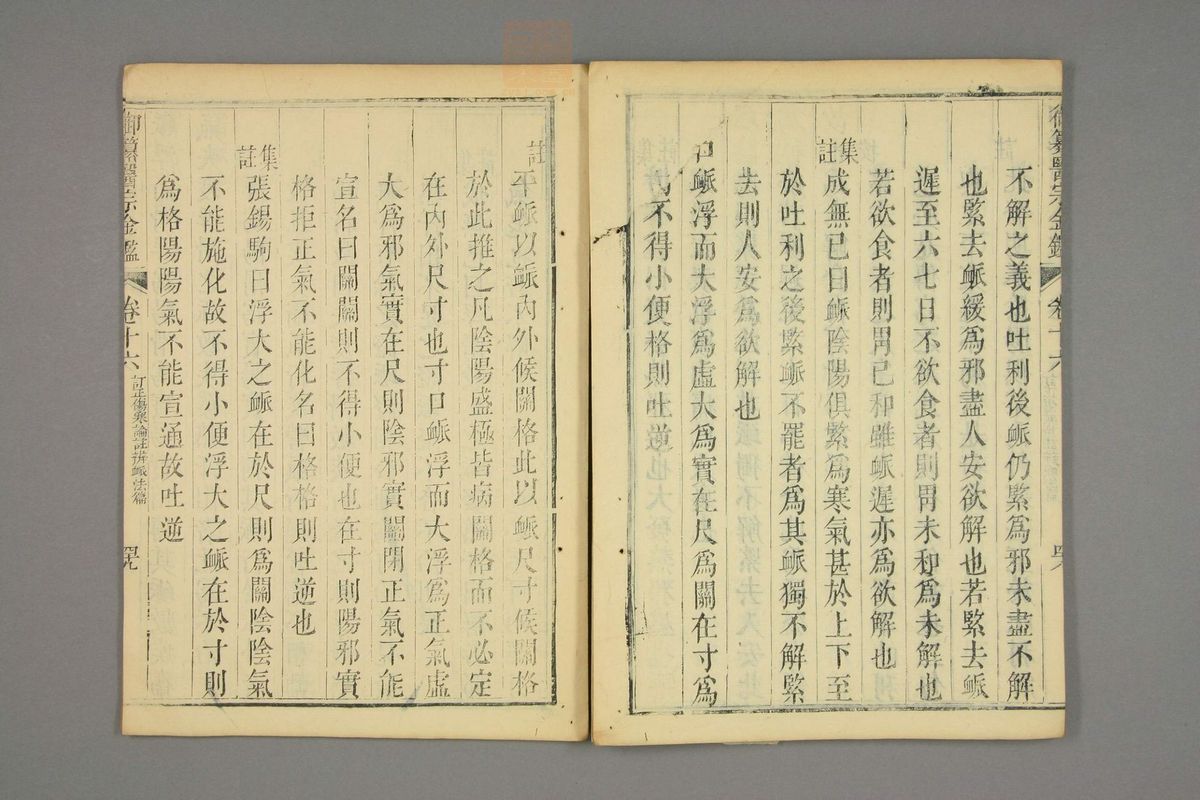 不解之義也吐利後脈仍緊爲邪未盡不解
也緊去脈緩爲邪盡人安欲解也若緊去脈
遲至六七日不欲食者則胃未和爲未解也
若欲食者則胃已和雖脈遲亦爲欲解也
集註
成無已曰脈陰陽俱緊爲寒氣甚於上下至
於吐利之後緊脈不罷者爲其脈獨不解緊
去則人安爲欲解也
口脈浮而大浮爲虛大爲實在尺爲關在寸爲
不得小便格則吐逆
註
平脈以脈內外候關格此以脈尺寸候關格
於此推之凡陰陽盛極皆病關格而不必定
在內外尺寸也寸口脈浮而大浮爲正氣虛
大爲邪氣實在尺則陰邪實關閉正氣不能
宣名曰關關則不得小便也在寸則陽邪實
格拒正氣不能化名曰格格則吐逆也
集註
張錫駒曰浮大之脈在於尺則爲關陰陰氣
不能施化故不得小便浮大之脈在於寸則
爲格陽陽氣不能宣通故吐逆
御纂醫宗金鑑
卷十六
訂正傷寒論註辨脈法篇